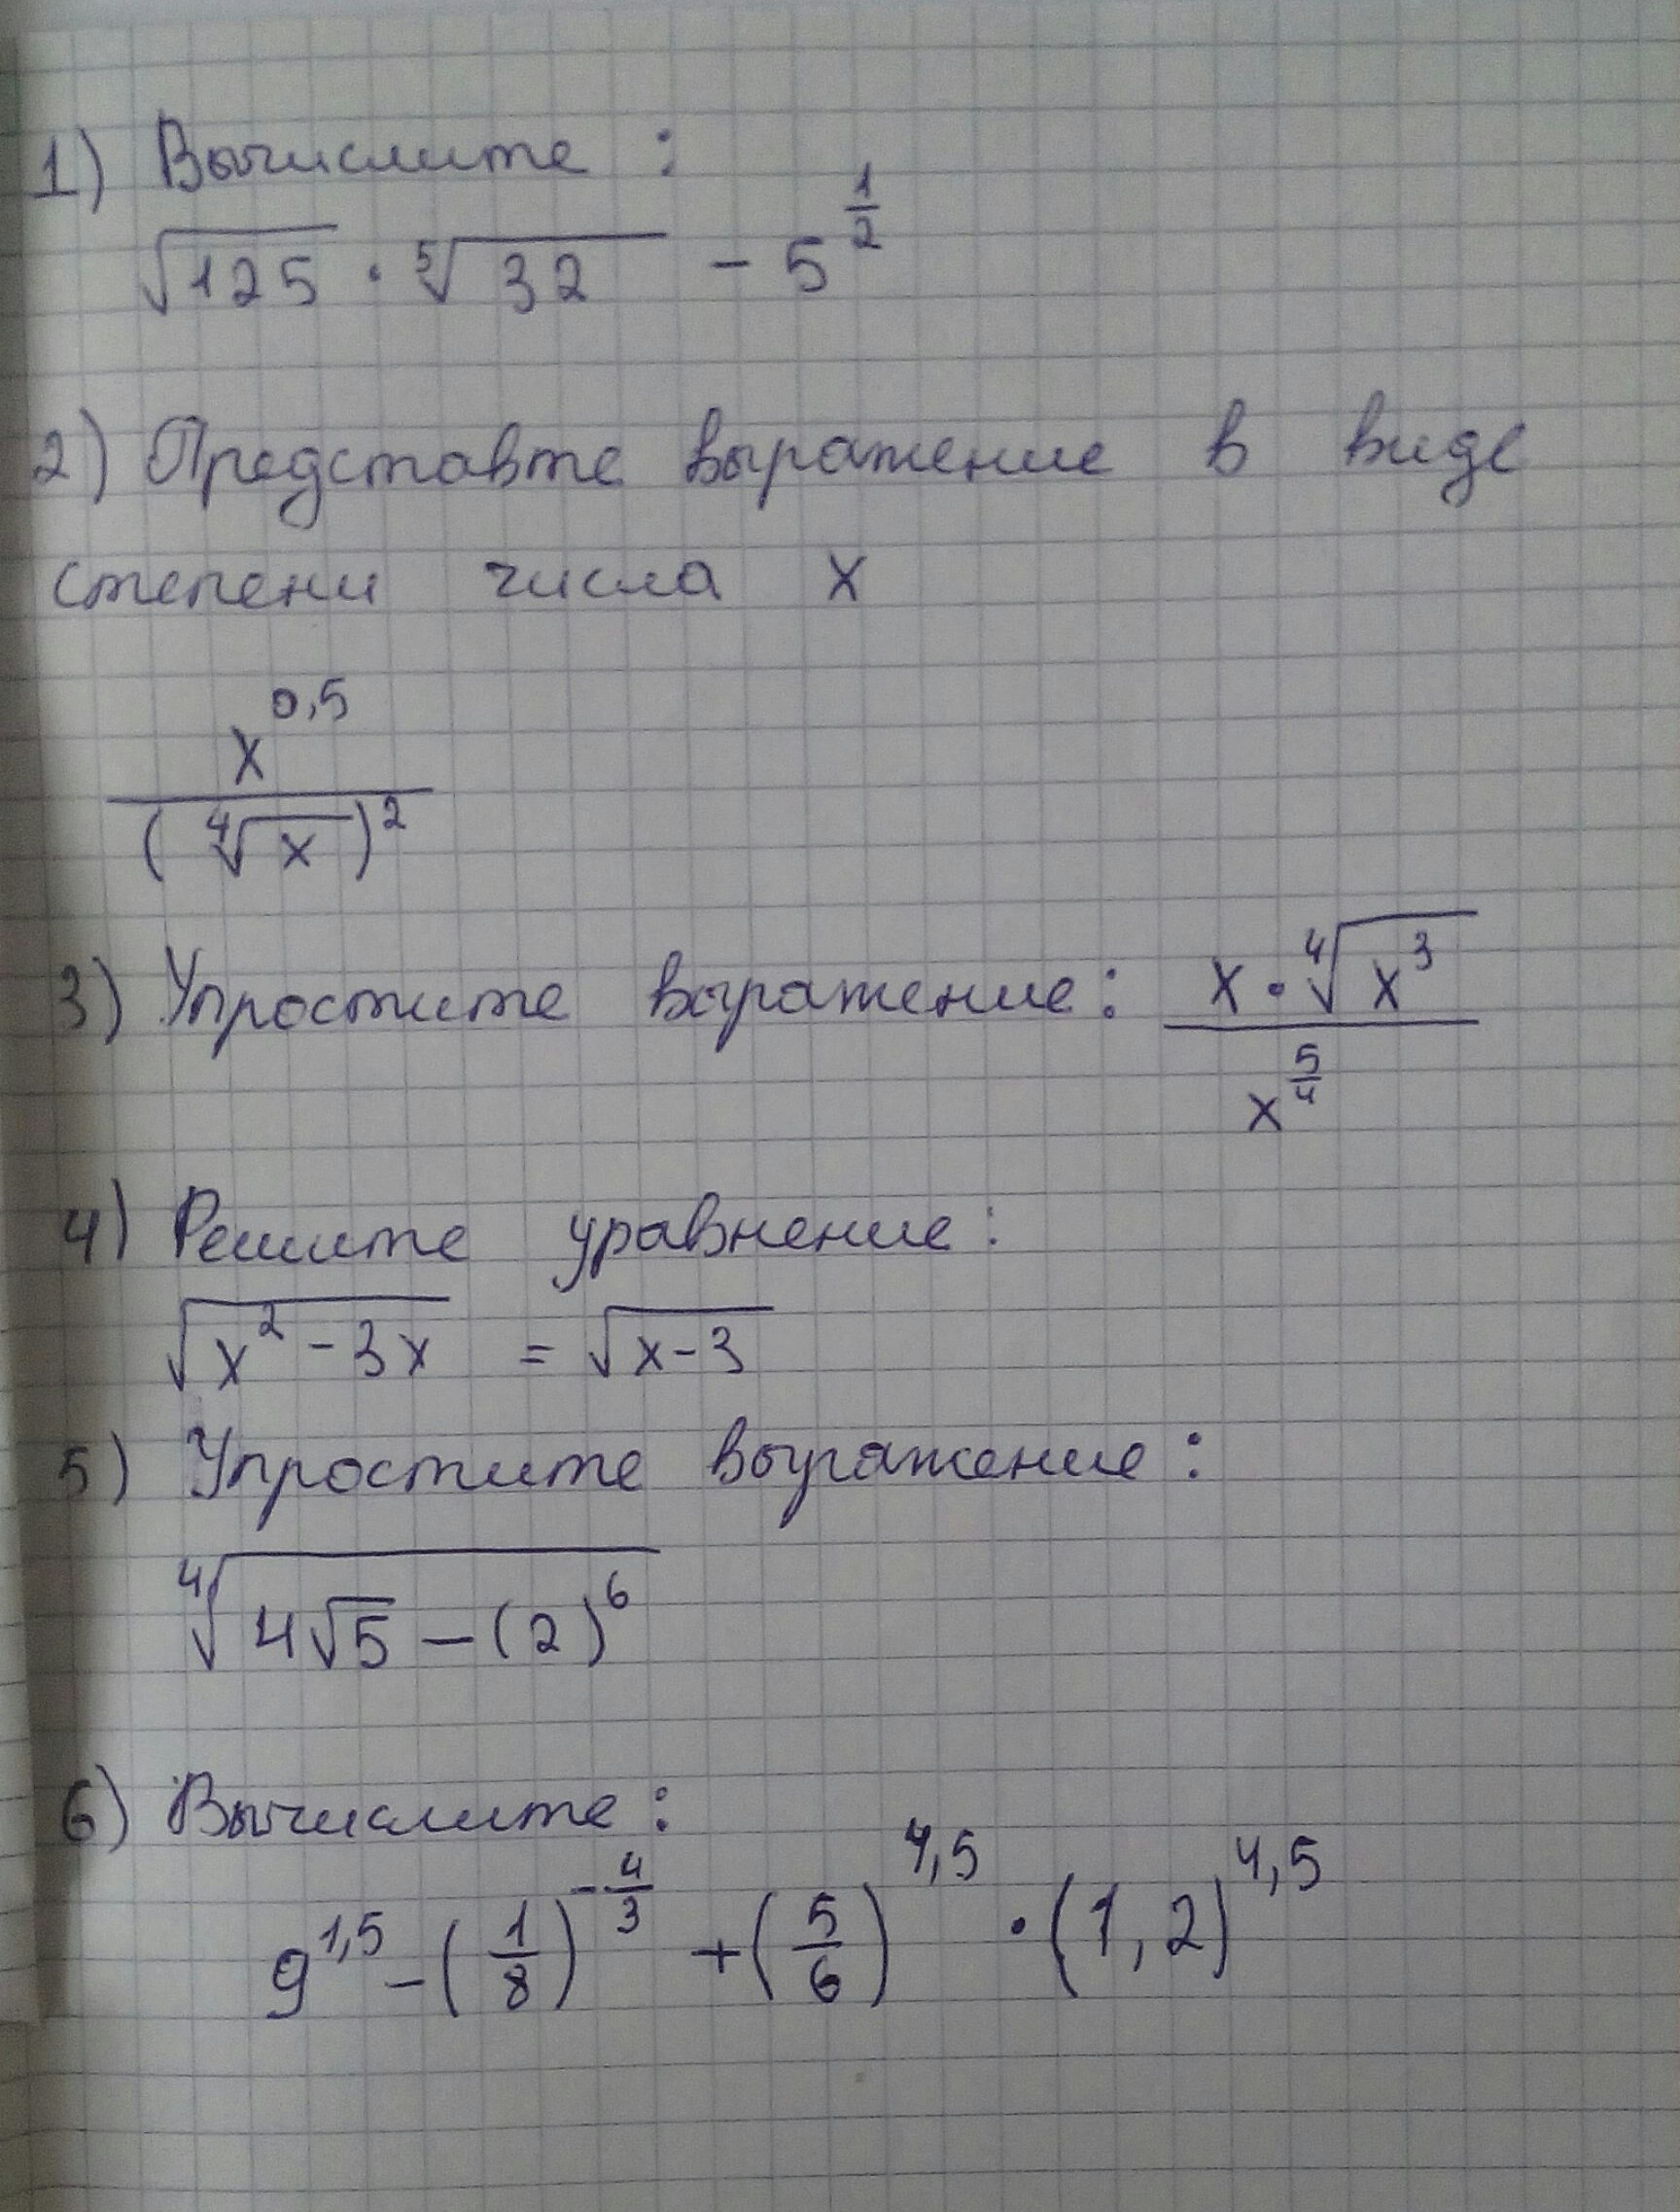 1) Вычислите :
√125 · ⁵√32 - 5^(1/2)
2) Представте выражение в виде
степени числа x
x^0,5 / (⁴√x)²
3) Упростите выражение: x · ⁴√x³ / x^(5/4)
4) Решите уравнение:
√(x² - 3x) = √(x-3)
5) Упростите выражение:
⁴√(4√5 - (2)⁶)
6) Вычислите:
9^1,5 - (1/8)^(-4/3) + (5/6)^4,5 · (1,2)^4,5